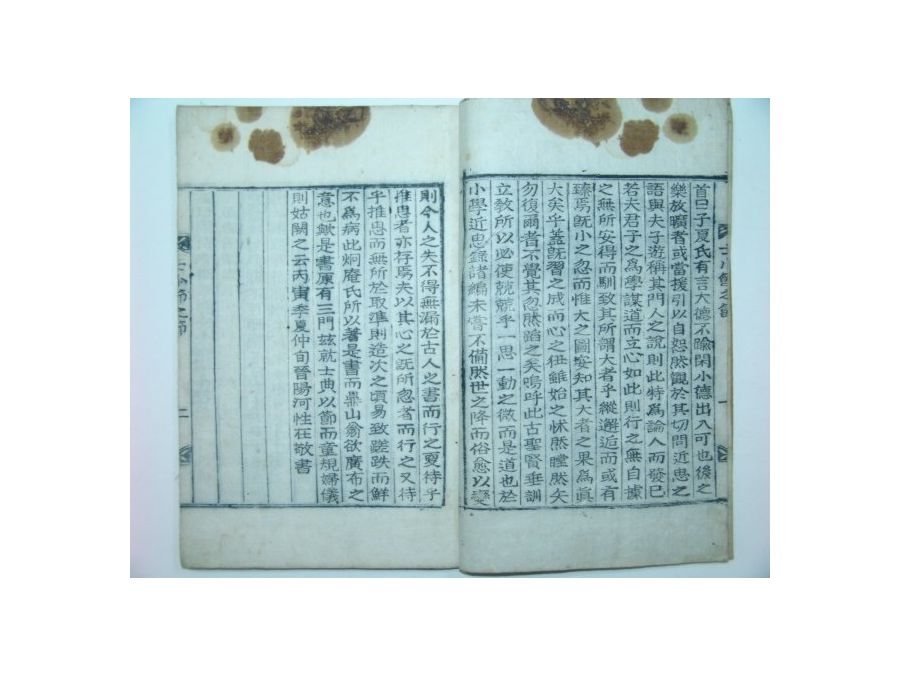 首曰子夏氏有言大德不踰閑小德出入可也後之
樂放曠者或當援引以自恕然觀於其切問近思之
語與夫子遊稱其門人之說則此特爲論人而發已
若夫君子之爲學謀道而立心如此則行之無自據
之無所安得而馴致其所謂大者乎縱邂逅而或有
臻焉旣小之忽而惟大之圖安知其大者之果爲眞
大矣乎蓋旣習之成而心之徃雖始之怵然瞠然矢
勿復爾者不覺其忽然蹈之矣嗚呼此古聖賢垂訓
立敎所以必使兢兢乎一思一動之微而是道也於
小學近思錄諸編未嘗不備然世之降而俗愈以變
則令人之失不得無漏於古人之書而行之夏待乎
推思者亦存焉夫以其心之旣所忽者而行之又待
乎推思而無所於取準則造次之頃易致蹉跌而鮮
不爲病此炯庵氏所以著是書而翁欲廣布之
意也歟是書原有三門玆就士典以節而童規婦儀
則姑闕之云丙寅季夏仲旬晉陽河性在敬書
士小節之節
一
士小節之節
二